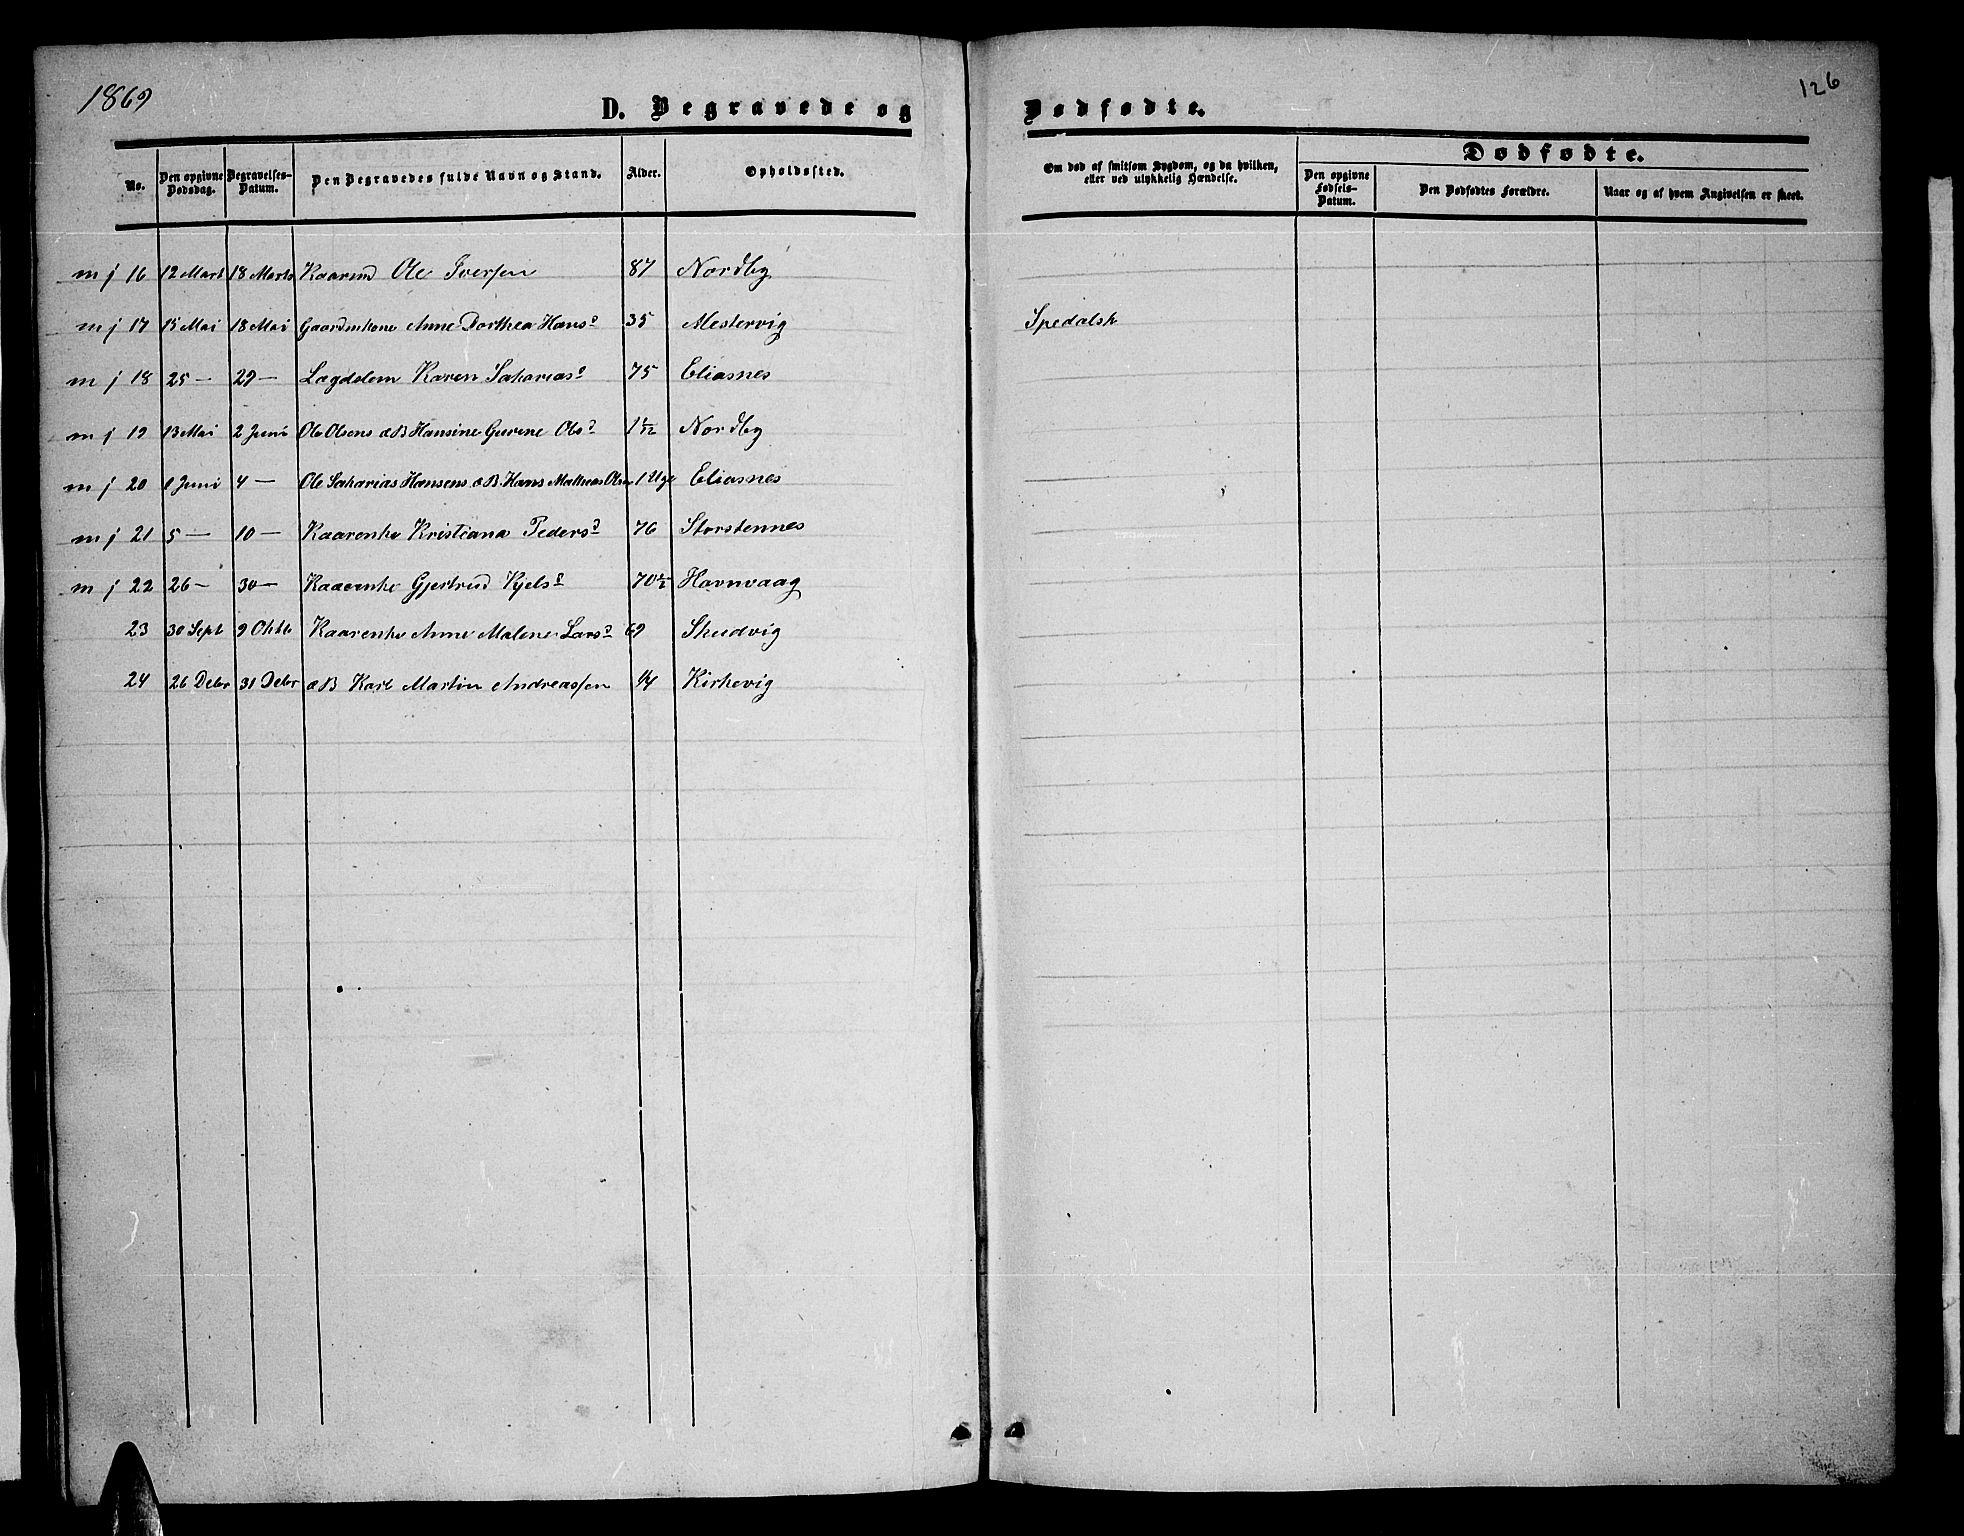 1869
126
D. Begravede og Dødfødte.
No.
Den opgivne Dødsdag.
Begravelses-Datum.
Den Begravedes fulde Navn og Stand.
Alder.
Opholdssted.
Om død af smitsom Sygdom, og da hvilken, eller ved ulykkelig Hændelse.
Dødfødte.
Den opgivne Fødsels-Datum.
Den Dødfødtes Forældre.
Naar og af hvem Angivelsen er skeet.
m j 16 12 Mart 18 Marts Kaarmd Ole Iversen 87 Nordby
m j 17 15 Mai 18 Mai Gaardmkone Anne Dorthea Hansd 35 Mestervig Spedalsk
m j 18 25 — 29 — Lægdslem Karen Sakariasd 75 Eliasnes
m j 19 13 Mai 2 Juni Ole Olsens æB Hansine Gurine Olsd Nordby
m j 20 1 Juni 4 — Ole Sakarias Hansens æB Hans Mathias Olsen 1 Uge Eliasnes
m j 21 5 — 10 — Kaarenke Kristiana Pedersd 76 Storstennes
m j 22 26 — 30 — Kaarenke Gjertrud Kjelsd 70½ Havnvaag
23 30 Sept 9 Oktb Kaarenke Anne Malene Larsd 69 Skudvig
24 26 Debr 31 Debr æB Karl Martin Andreassen ¼ Kirkevig